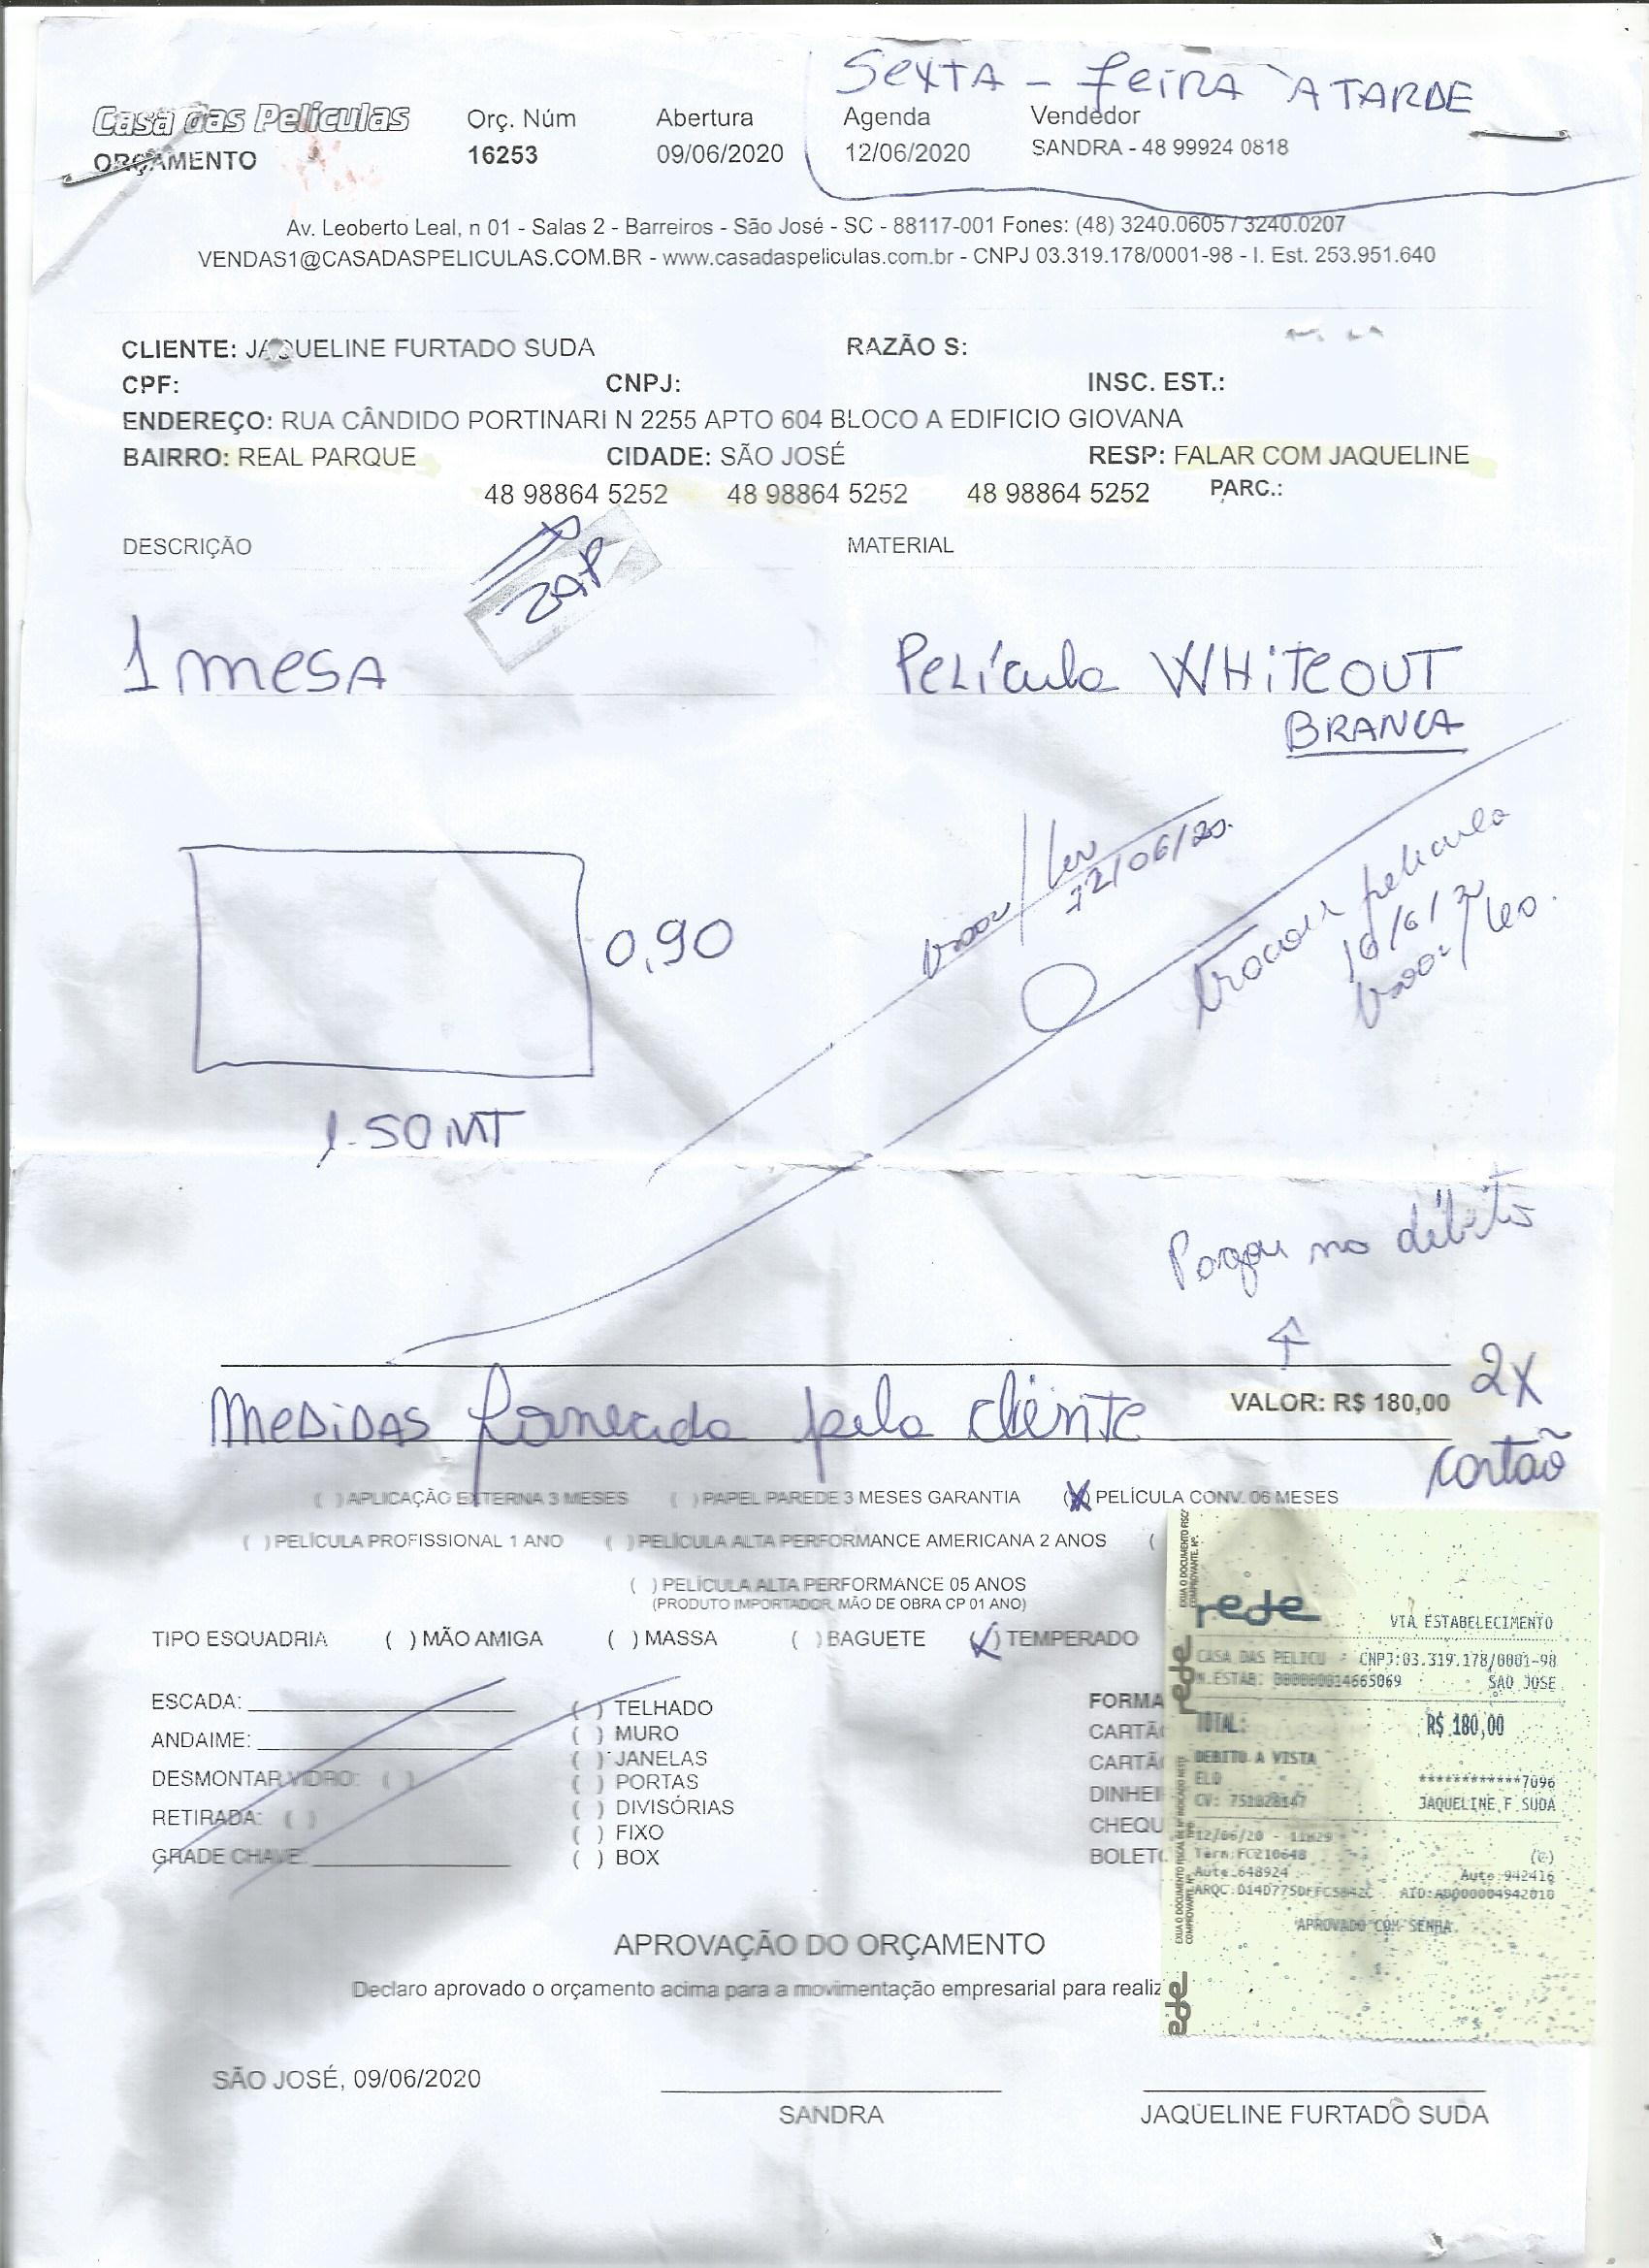 SEXTA - feiRA À TARDE
Casa das Películas
ORÇAMENTO
Orç. Núm
16253
Abertura
09/06/2020
Agenda
12/06/2020
Vendedor
SANDRA - 48 99924 0818
Av. Leoberto Leal, n 01 - Salas 2 - Barreiros - São José - SC - 88117-001 Fones: (48) 3240.0605 / 3240.0207
VENDAS1@CASADASPELICULAS.COM.BR - www.casadaspeliculas.com.br - CNPJ 03.319.178/0001-98 - I. Est. 253.951.640
CLIENTE: JAQUELINE FURTADO SUDA RAZÃO S:
CPF: CNPJ: INSC. EST.:
ENDEREÇO: RUA CÂNDIDO PORTINARI N 2255 APTO 604 BLOCO A EDIFICIO GIOVANA
BAIRRO: REAL PARQUE CIDADE: SÃO JOSÉ RESP: FALAR COM JAQUELINE
48 98864 5252 48 98864 5252 48 98864 5252 PARC.:
DESCRIÇÃO MATERIAL
ZAP
1 MESA Película WHITEOUT
BRANCA
12/06/20.
trocou pelicula
0,90
1.50 MT
Pagou no débito
MEDIDAS fornecida pela cliente VALOR: R$ 180,00 2X
cartão
( ) APLICAÇÃO EXTERNA 3 MESES ( ) PAPEL PAREDE 3 MESES GARANTIA (X) PELÍCULA CONV. 06 MESES
( ) PELÍCULA PROFISSIONAL 1 ANO ( ) PELÍCULA ALTA PERFORMANCE AMERICANA 2 ANOS (
( ) PELÍCULA ALTA PERFORMANCE 05 ANOS
(PRODUTO IMPORTADOR, MÃO DE OBRA CP 01 ANO)
TIPO ESQUADRIA ( ) MÃO AMIGA ( ) MASSA ( ) BAGUETE (✓) TEMPERADO
ESCADA:
ANDAIME:
DESMONTAR VIDRO: ( )
RETIRADA: ( )
GRADE CHAVE:
( ) TELHADO
( ) MURO
( ) JANELAS
( ) PORTAS
( ) DIVISÓRIAS
( ) FIXO
( ) BOX
FORMA
CARTÃ
CARTÃ
DINHEI
CHEQU
BOLET
rede
VIA ESTABELECIMENTO
CASA DAS PELICU CNPJ:03.319.178/0001-98
N.ESTAB: 000000014665069 SAO JOSE
TOTAL: R$ 180,00
DEBITO A VISTA
ELO ************7096
CV: 751828147 JAQUELINE F SUDA
12/06/20 - 11H29
Term:FC210648 (C)
Aute:648924 Auto:942416
AID:A0000004942010
APROVADO COM SENHA
rede
APROVAÇÃO DO ORÇAMENTO
Declaro aprovado o orçamento acima para a movimentação empresarial para realiz
SÃO JOSÉ, 09/06/2020
SANDRA
JAQUELINE FURTADO SUDA